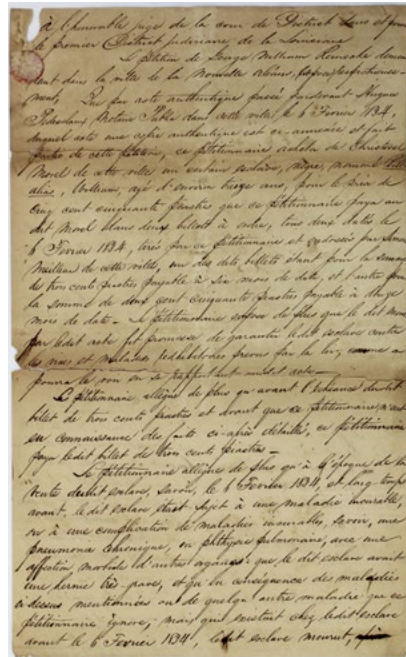 à l'honorable juge de la cour de District dans et pour
le premier District judiciaire de la Louisiane
La pétition de George William demeu-
rant dans la ville de la Nouvelle Orléans,
ment, Que par acte authentique passé pardevant Hugues
Pedesclaux Notaire Public dans cette ville le 6 Février 1834,
duquel acte une copie authentique est ci-annexée et fait
partie de cette pétition, ce pétitionnaire acheta de Christoval
Morel de cette ville un certain esclave, nègre, nommé
alias, William, agé d'environ treize ans, pour le prix de
Cinq cent cinquante piastres que ce pétitionnaire paya au
dit Morel dans deux billets à ordre, tous deux datés le
6 Février 1834, tirés par ce pétitionnaire et endossés par
de cette ville, un des dits billets étant pour la somme
de trois cents piastres payable à six mois de date, et l'autre pour
la somme de deux cent cinquante piastres payable à douze
mois de date - Le pétitionnaire de plus que le dit Morel
par ledit acte fit promesse de garantir ledit esclave contre
les vices et maladies redhibitoires prévus par la loi, comme
pourra le voir en se rapportant audit acte -
Le pétitionnaire allègue de plus qu'avant l'échéance dudit
billet de trois cents piastres et avant que ce pétitionnaire
eu connaissance des faits ci-après détaillés, ce pétitionnaire
paya ledit billet de trois cents piastres -
Le pétitionnaire allègue de plus qu'à l'époque de la
vente dudit esclave, savoir, le 6 Février 1834, et long temps
avant, le dit esclave était sujet à une maladie incurable,
ou à une complication de maladies incurables, savoir, une
pneumonie chronique, ou phthysie pulmonaire, avec une
affection morbide d'autres organes; que le dit esclave avait
une hernie très-grave, et qu'en conséquence des maladies
ci dessus mentionnées ou de quelqu'autre maladie que ce
pétitionnaire ignore, mais qui existait chez ledit esclave
avant le 6 Février 1834, ledit esclave mourut,